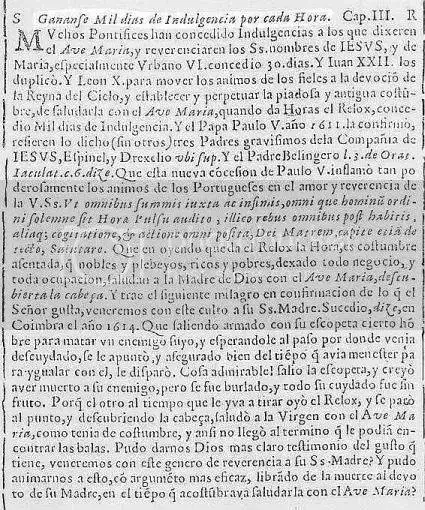 S Gananse Mil dias de Indulgencia por cada Hora. Cap. III. R
MVchos Pontifices han concedido Indulgencias a los que dixeren
el Ave Maria, y reverenciaren los Ss. nombres de IESVS, y de
Maria, especialmente Vrbano VI. concedio 30. dias. Y Iuan XXII. los
duplicò. Y Leon X. para mover los animos de los fieles a la devociō
de la Reyna del Cielo, y establecer y perpetuar la piadosa y antigua costū
bre, de saludarla con el Ave Maria, quando da Horas el Relox, conce-
dio Mil dias de Indulgencia. Y el Papa Paulo V. año 1611. la confirmo,
refieren lo dicho (sin otros) tres Padres gravisimos dela Compañia de
IESVS, Espinel, y Drexelio vbi sup. Y el Padre Belingero l. 3. de Orat.
Iaculat. c. 6. dize. Que esta nueva cōcesion de Paulo V. inflamò tan po
derosamente los animos de los Portugueses en el amor y reverencia de
la V. Ss. Vt omnibus summis iuxta ac infimis, omni que hominū ordi-
ni solemne sit Hora Pulsu audito, illico rebus omnibus post habitis,
aliaq; cogitatione, & actione omni posita, Dei Matrem, capite etiā de
tecto, Salutare. Que en oyendo que da el Relox la Hora, es costumbre
asentada, q̄ nobles y plebeyos, ricos y pobres, dexado todo negocio, y
toda ocupacion, saludan a la Madre de Dios con el Ave Maria, descu-
bierta la cabeça. Y trae el siguiente milagro en confirmacion de lo q̄ el
Señor gusta, veneremos con este culto a su Ss. Madre. Sucedio, dize, en
Coimbra el año 1614. Que saliendo armado con su escopeta cierto hō
bre para matar vn enemigo suyo, y esperandole al paso por donde venia
descuydado, se le apuntò, y asegurado bien del tiēpo q̄ avia menester pa
ra ygualar con el, le disparò. Cosa admirable! salio la escopeta, y creyò
aver muerto a su enemigo, pero se fue burlado, y todo su cuydado fue sin
fruto. Porq̄ el otro al tiempo que le yva a tirar oyò el Relox, y se parò
al punto, y descubriendo la cabeça, saludò a la Virgen con el Ave Ma
ria, como tenia de costumbre, y ansi no llegò al termino q̄ le podiā en-
contrar las balas. Pudo darnos Dios mas claro testimonio del gusto q̄
tiene, veneremos con este genero de reverencia a su Ss-Madre? Y pudo
animarnos a esto, cō argumēto mas eficaz, librādo de la muerte al devo
to de su Madre, en el tiēpo q̄ acostūbrava saludarla con el Ave Maria?